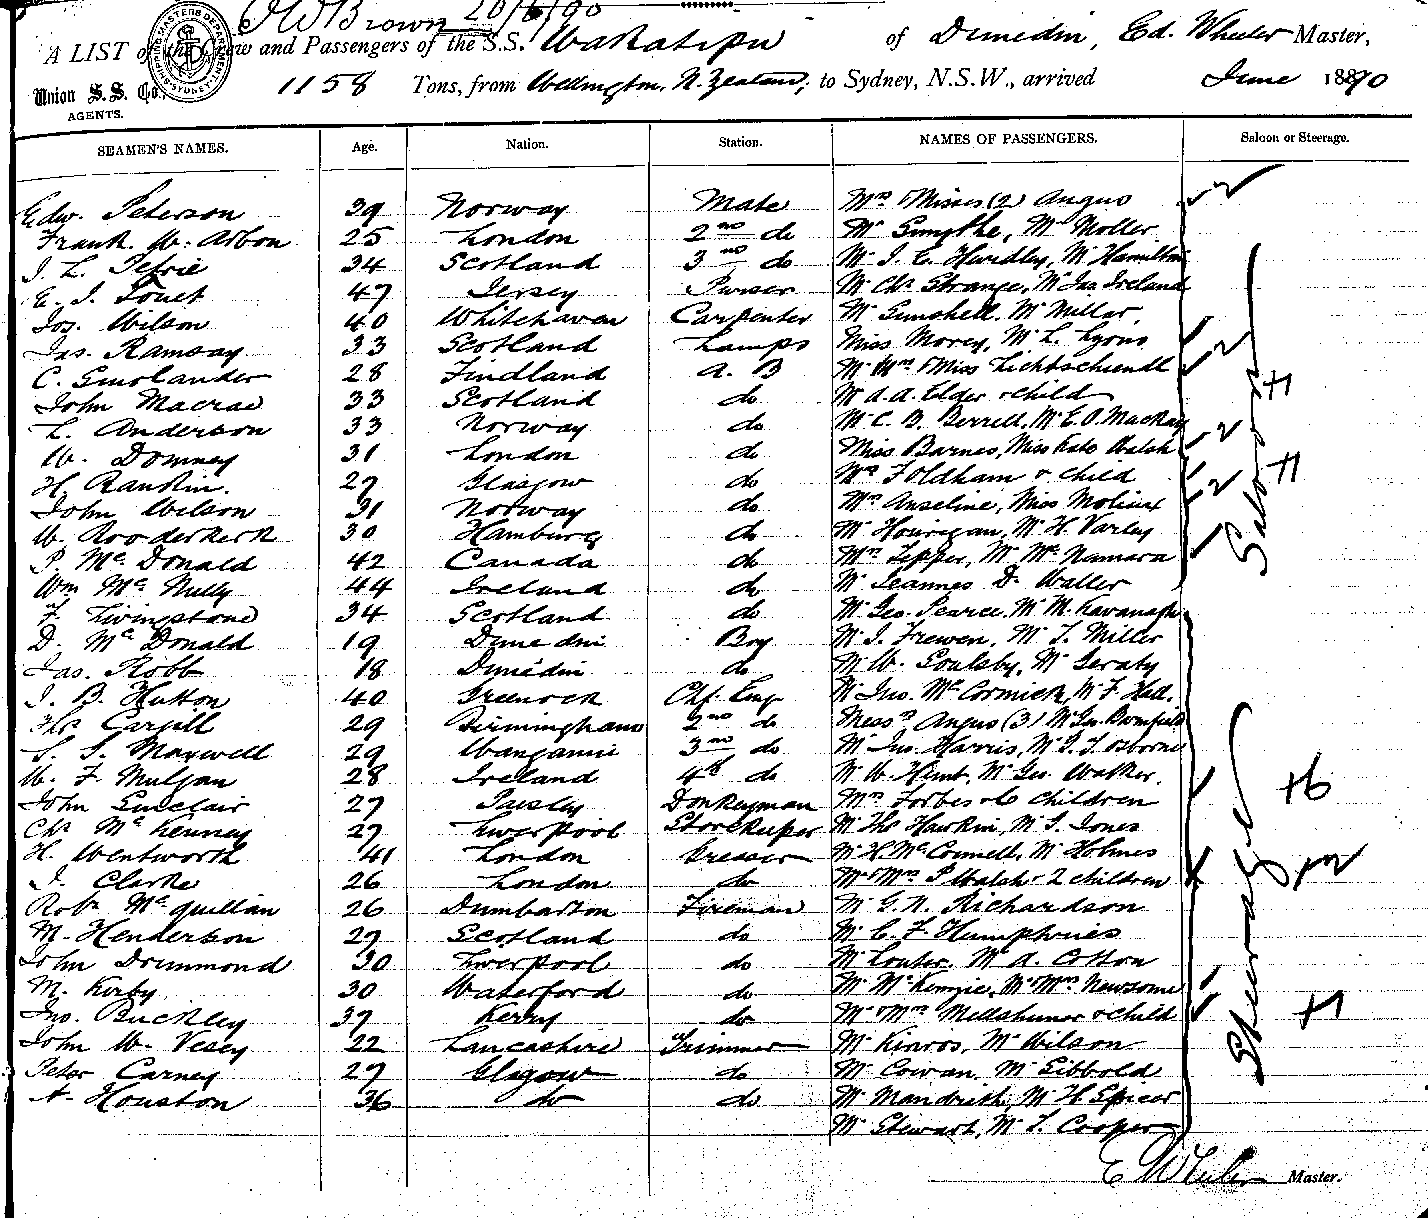 O W Brown 20/6/90
A LIST of the Crew and Passengers of the S.S. Wakatipu of Dunedin, Ed. Wheeler Master,
SHIPPING MASTERS DEPARTMENT SYDNEY
Union S.S. Co., AGENTS. 1158 Tons, from Wellington, N. Zealand, to Sydney, N.S.W., arrived June 1890
SEAMEN'S NAMES. Age. Nation. Station. NAMES OF PASSENGERS. Saloon or Steerage.
Edw. Peterson 39 Norway Mate Mrs & Misses (2) Angus 2
Frank W. Arbon 25 London 2nd do Mr Smythe, Mr Moller
J. L. Petrie 34 Scotland 3rd do Mr J. C. Hurdley, Mr Hamilton
E. J. Jouet 47 Jersey Purser Mr Chs Strange, Mr Jas Ireland
Jos. Wilson 40 Whitehaven Carpenter Mr Gunshell, Mr Millar,
Jas. Ramsay 33 Scotland Lamps Miss Morey, Mr L. Lyons
C. Smolander 28 Findland A. B Mr Mrs & Miss 2
John Macrae 33 Scotland do Mr A. A. Elder & child
L. Anderson 33 Norway do Mr C. B. Berrell, Mr E. O. MacKay
W. Downey 31 London do Miss Barnes, Miss Kate Walsh 2
H. Rankin. 27 Glasgow do Mrs F Oldham & child
John Wilson 31 Norway do Mrs Anseline, Miss Molineux 2
W. Rooderkerk 30 Hamburg do Mr Hourigan, Mr H. Varley
P. McDonald 42 Canada do Mrs Tepper, Mr McNamara
Wm McNully 44 Ireland do Mr Jeannes D. Waller
Saloon
F. Livingstone 34 Scotland do Mr Geo. Pearce. Mr M. Kavanagh
D. McDonald 19 Dunedin Boy Mr J. Frewen, Mr T. Miller
Jas. Robb 18 Dunedin do Mr W. Goulsby, Mr Geraty
J. B. Hutton 40 Greenock Chf. Eng Mr Jno. McCormick, Mr F. Hall.
Ths Cargill 29 Birmingham 2nd do Messrs Angus (3) Mr Geo. Bromfield
S. J. Maxwell 29 Wanganui 3rd do Mr Jno. Harris, Mr J. T. Osborne
W. F. Mulgan 28 Ireland 4th do Mr W. Hunt, Mr Geo. Walker.
John Sinclair 27 Paisly Donkeyman Mrs Forbes & 6 children +6
Chs McKenney 27 Liverpool Storekeeper Mr Ths Hawkin, Mr S. Jones
H. Wentworth 41 London Greaser Mr H. McConnell, Mr Holmes
J. Clarke 26 London do Mr & Mrs P Walsh & 2 children +2
Robt McQuillan 26 Dumbarton Fireman Mr G. N. Richardson
M. Henderson 27 Scotland do Mr C. F. Humphries
John Drummond 30 Liverpool do Mr Louter, Mr A. Cotton
M. Kirby 30 Waterford do Mr McKenzie, Mr & Mrs Newsome
Jno. Buckley 37 Kerry do Mr & Mrs Mellshunor & child +1
John W. Vesey 22 Lancashire Trimmer Mr Kinros, Mr Wilson
Peter Carney 27 Glasgow do Mr Cowan, Mr Sibbold
A. Houston 36 do do Mr Mandrith, Mr H Spicer
Mr Stewart, Mr T. Cooper
Steerage
E Wheeler Master.